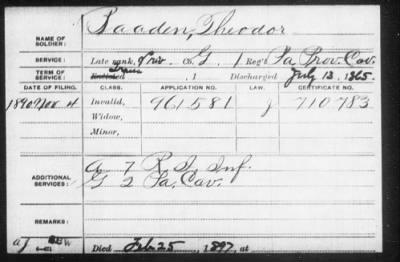 NAME OF SOLDIER: Baaden, Theodor
SERVICE: Late rank, Priv Co. G, 1 Reg't Pa Prov. Cav.
TERM OF SERVICE: Enlisted , 1 Discharged July 13, 1865.
DATE OF FILING. CLASS. APPLICATION NO. LAW. CERTIFICATE NO.
1890 Nov. 4 Invalid, 961581 J 710783
Widow,
Minor,
ADDITIONAL SERVICES: A 7 R. I. Inf.
G 2 Pa. Cav.
REMARKS:
Died Feb 25, 1897, at